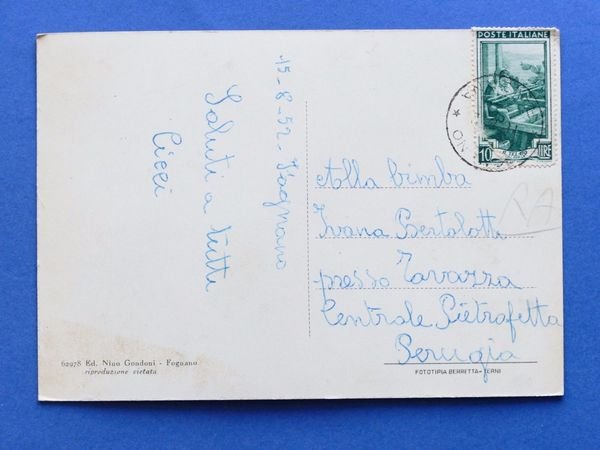 15-8-52. Fognano
Saluti a tutti
Cicci
POSTE ITALIANE
10 LIRE
Alla bimba
Ivana Bertolotti
presso Tavazza
Centrale Pietrafetta
Perugia
RA
62978 Ed. Nino Gondoni - Fognano
riproduzione vietata
FOTOTIPIA BERRETTA-TERNI